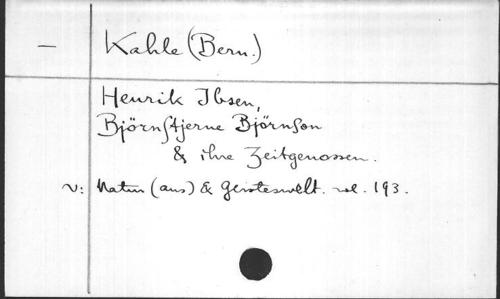 — Kahle (Bern.)
Henrik Ibsen,
Björnstjerne Björnson
& ihre Zeitgenossen.
v: Natur (aus) & Geisteswelt. vol. 193.